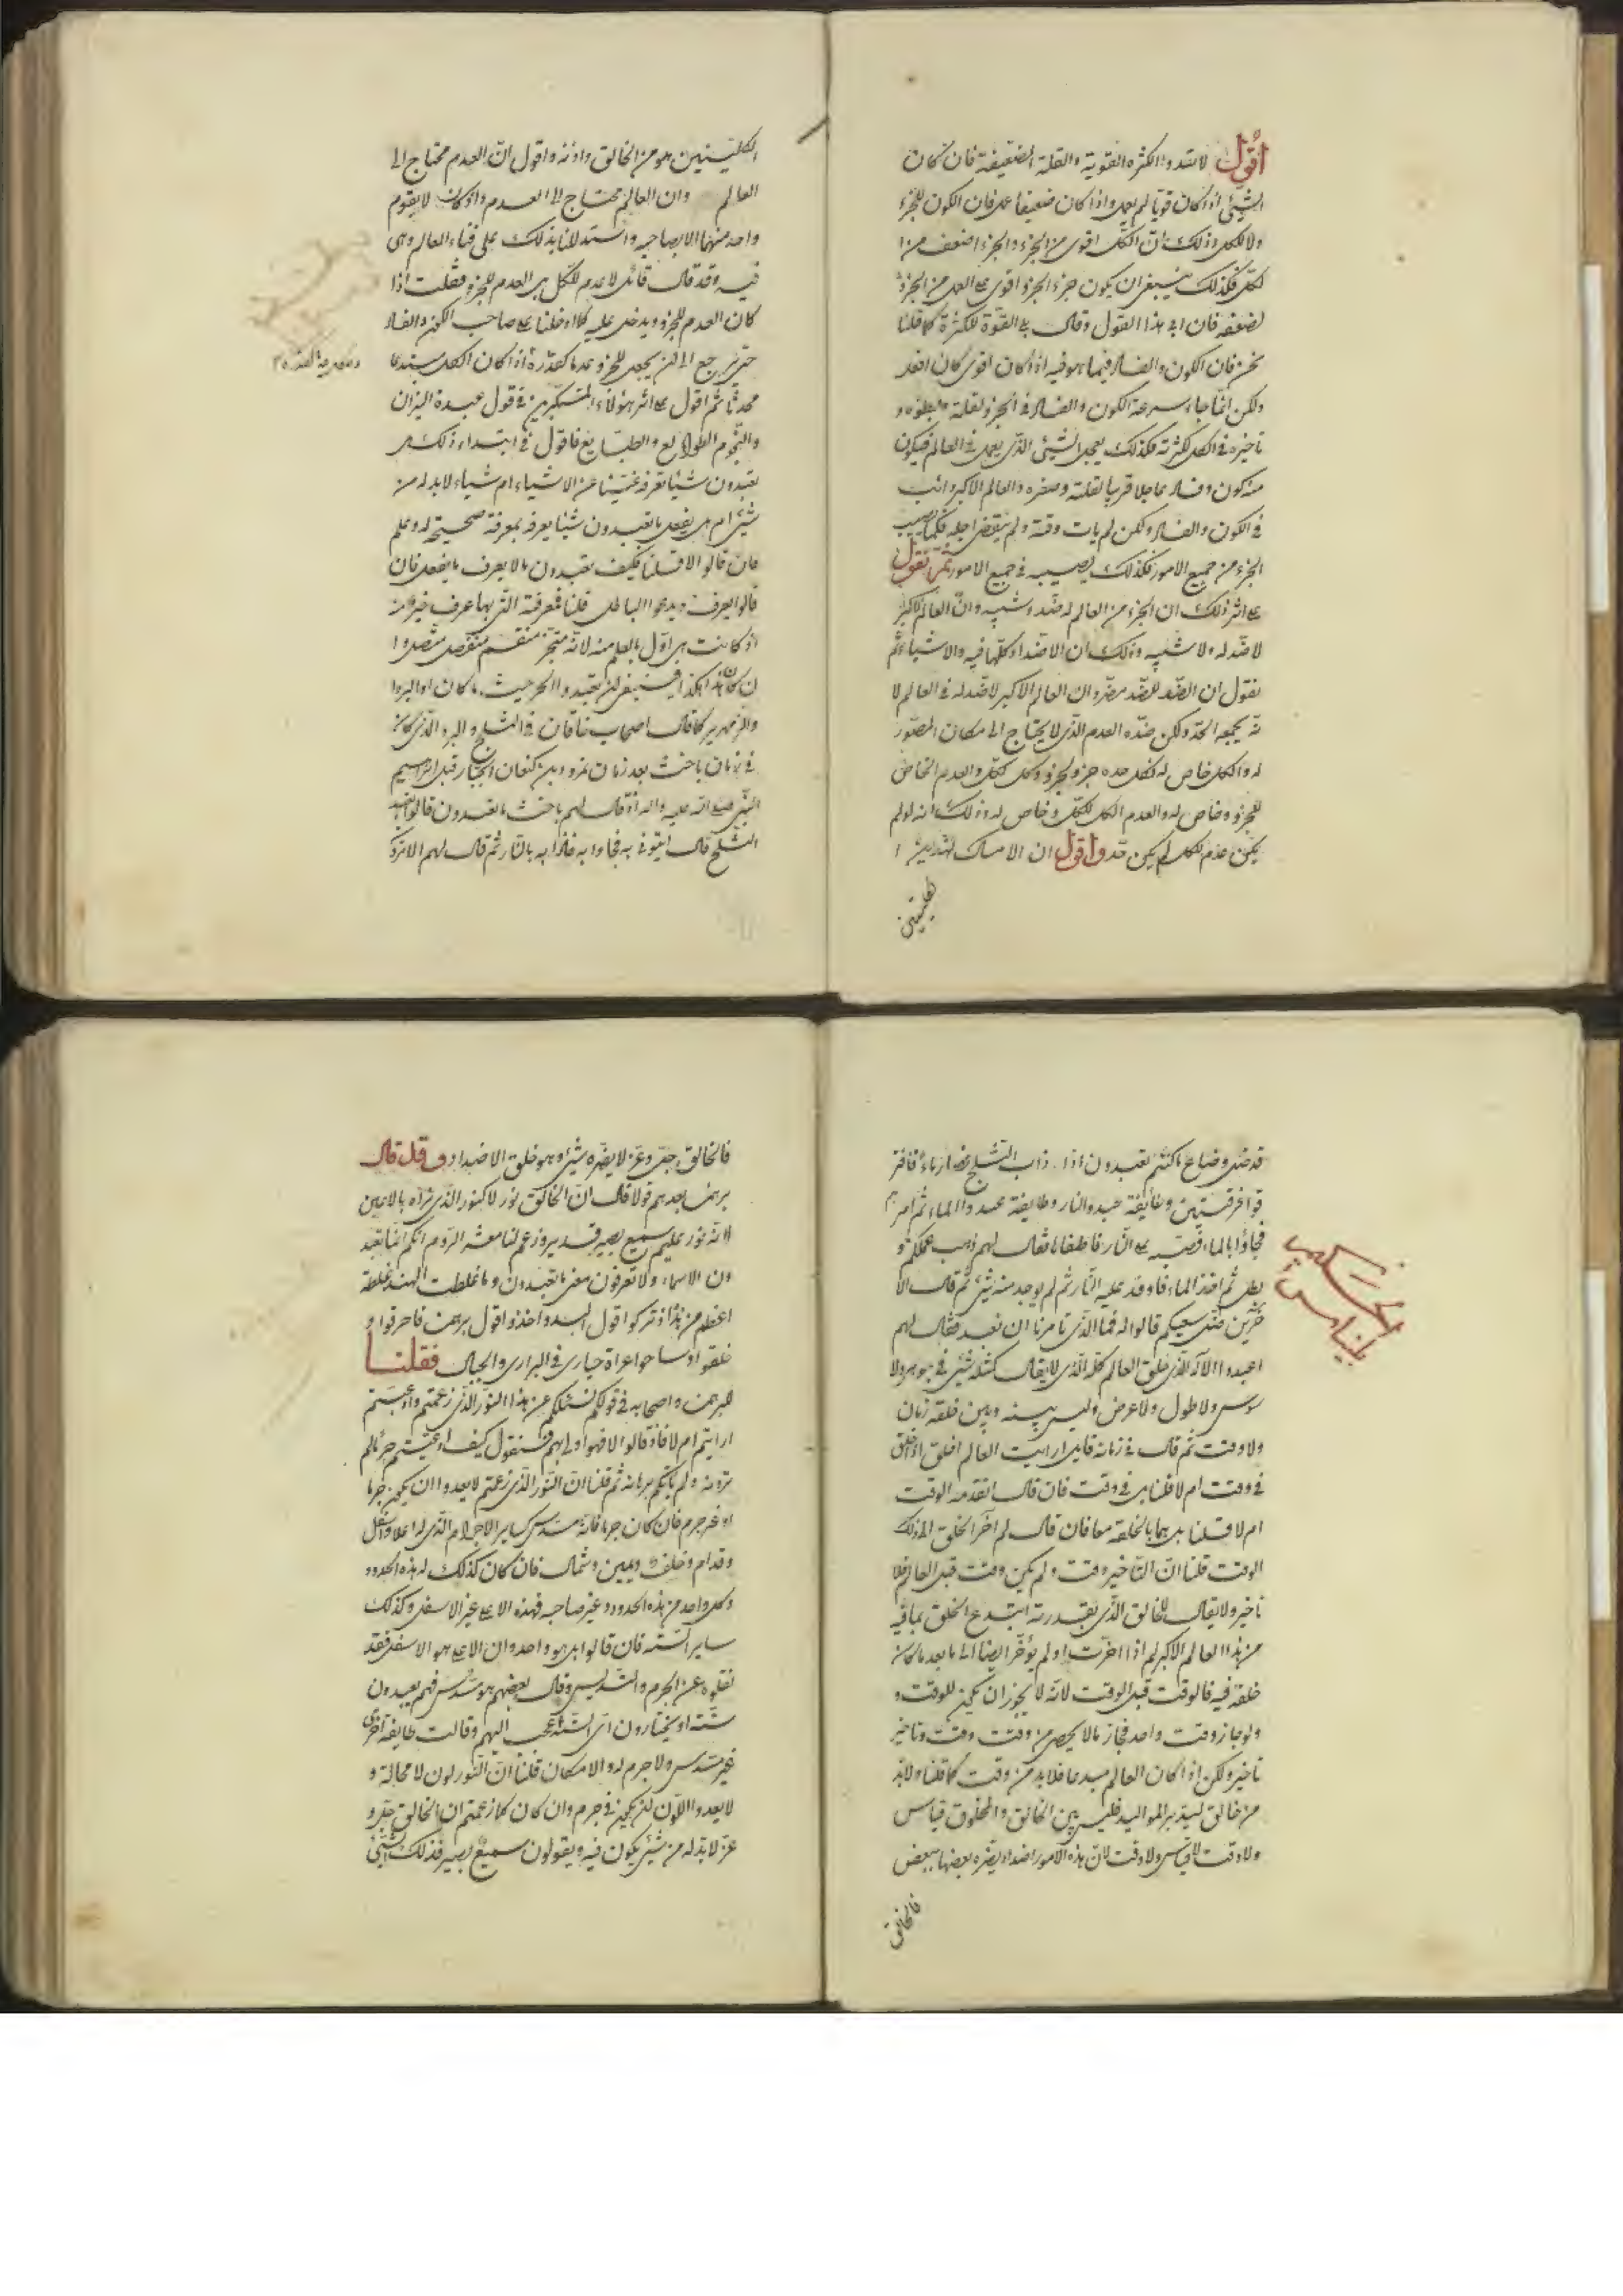 اقول لا شد والكثرة القوية والقلة الضعيفة فان كان
الشيئ اذا كان قويا لم يعمل واذا كان ضعيفا عمل فان الكون للجزء
ولا للكل وذلك ان الكل اقوى من الجزء والجزء اضعف من ا
لكل فكذلك ينبغى ان يكون جزء الجزء اقوى على العمل من الجزء
لضعفه فان ابى هذا القول وقال بل القوة للكثرة كما قلنا
نحن فان الكون والفساد فيما هو فيه اذا كان اقوى كان افعل
ولكن انما جاء سرعة الكون والفساد فى الجزء لقلته و
تاخيره فى الكل لكثرته فكذلك يعجل الشيئ الذى يعمل فى العالم فيكون
منه كون وفساد عاجلا قريبا لقلته وصغره والعالم الاكبر دائب
فى الكون والفساد ولكن لم يات وقته ولم ينقض اجله فكما يصيب
الجزء من جميع الامور فكذلك يصيبه فى جميع الامور ثم نقول
على اثر ذلك ان الجزء من العالم له ضد وشبه وان العالم الاكبر
لا ضد له ولا شبه وذلك ان الاضداد كلها فيه والاشياء ثم
نقول ان الضد للضد مضر وان العالم الاكبر لا ضد له فى العالم لا
نه يجمعه الحد ولكن ضده العدم الذى لا يحتاج الى مكان المصور
له والكل خاص له لكل حده جزء لجزء وكل لكل والعدم الخاص
للجزء وخاص له والعدم الكل للكل وخاص له وذلك انه لو لم
يكن عدم لكل لم يكن حد واقول ان الامساك لهذين ا
لكليتين
الكليتين هو من الخالق واذنه واقول ان العدم محتاج الى
العالم وان العالم محتاج الى العدم واذ كان لا يقوم
واحد منهما الا بصاحبه واستدللنا بذلك على فناء العالم وهى
فيه وقد قال قائل لا عدم للكل بل العدم للجزء فقلت اذا
كان العدم للجزء ويدخل عليه كلما دخلنا على صاحب الكون والفساد
حتى يرجع الى ان يجعل للجزء عدما كقدره اذا كان الكل مبتدعا
محدثا ثم اقول على اثر هؤلاء المتكبرين فى قول عبدة النيران
والنجوم الطوالع والطبايع فاقول فى ابتداء ذلك هل
تعبدون شيئا تعرفه غنينا عن الاشياء ام شياء لا بد له من
شيئ ام هل يفعل ما تعبدون شيئا يعرفه بمعرفة صحيحة له وعلم
فان قالوا لا قلنا فكيف تعبدون ما لا يعرف ما يفعل فان
قالوا يعرف ويدعوا الباطل قلنا فمعرفته التى بها عرف خير منه
اذ كانت هى اول بالعلم منه لانه متجز منقسم منتقص متصل وا
ن كان هذا هكذا فينبغى لمن يعبد والحر حيث ما كان او البرد ا
والزمهرير كما قال اصحاب خاقان فى الثلج والبرد الذى كان
فى زمان باخث بعد زمان نمرود بن كنعان الجبار قبل ابراهيم
النبى صلى الله عليه واله اذ قال لهم باخث ما تعبدون قالوا نعبد
الثلج قال ايتونى به فجاوا به فاذابه بالنار ثم قال لهم الا ترو
قد ضل وضاع ما كنتم تعبدون اذا ذاب الثلج فصار ماء فافتر
قوا فرقتين وطايفة عبدوا النار وطايفة عبدوا الماء ثم امرهم
فجاؤا بالماء فصبه على النار فاطفاها فقال لهم ذهب عملكم و
بطل ثم اخذ الماء فاوقد عليه النار ثم لم يوجد منه شيئ ثم قال الا
خرين ضل سعيكم قالوا له فما الذى تامرنا ان نعبد فقال لهم
اعبدوا الاله الذى خلق العالم كله الذى لا يقال كمثله شيئ فى جوهر ولا
سوس ولا طول ولا عرض وليس بينه وبين خلقه زمان
ولا وقت ثم قال فى زمانه قايل ارايت العالم اخلق اذ خلق
فى وقت ام لا قلنا بل فى وقت فان قال اتقدمه الوقت
ام لا قلنا بل هما بالخلقة معا فان قال لم اخر الخلق الى ذلك
الوقت قلنا ان التاخير وقت ولم يكن وقت قبل العالم فلا
تاخير ولا يقال للخالق الذى بقدرته ابتدع الخلق بما فيه
من هذا العالم الاكبر لم اذا اخرت او لم يؤخر ايضا الى ما بعد ما كان
خلقه فيه فالوقت قبل الوقت لانه لا يجوز ان يكون للوقت و
ولو جاز وقت واحد فجاز ما لا يحصى من وقت وقت وتاخير
تاخير ولكن اذا كان العالم مبدعا فلا بد من وقت كما قلنا ولا بد
من خالق ليدبر المواليد فليس بين الخالق والمخلوق قياس
ولا وقت لا قياس ولا وقت لان هذه الامور اضداد يضره بعضها ببعض
فالخالق
فالخالق جل وعز لا يضره شيئ وهو خلق الاضداد وقد قال
برهمن بعدهم قولا قال ان الخالق نور لا كنور الذى نراه بالاعين
لانه نور عليم سميع بصير قدير وزعم لنا معشر الروم انكم انما تعبد
ون الاسماء ولا تعرفون معنى ما تعبدون وما غلطت الهند غلطة
اعظم من هذا اذ تركوا قول البد واخذوا قول برهمن فاحرقوا و
خلقوا وساحوا عراة حيارى فى البرارى والجبال فقلنا
للبرهمن واصحابه فى قولكم نسئلكم عن هذا النور الذى زعمتم وادعيتم
ارايتم ام لا فاذ قالوا لا فهو اولى بهم فنقول كيف ادعيتم خبر ما لم
تروه ولم ياتكم برهانه ثم قلنا ان النور الذى زعمتم لا يعدوا ان يكون جرما
او غير جرم فان كان جرما فانه مسدس كساير الاجرام الذى له اعلا واسفل
وقدام وخلف ويمين وشمال فان كان كذلك له هذه الحدود
وكل واحد من هذه الحدود غير صاحبه فهذه الاعلى غير الاسفل وكذلك
ساير الستة فان قالوا بل هو واحد وان الاعلى هو الاسفل فقد
نقلوه عن الجرم والتسديس وقال بعضهم هو مسدس فهم يعبدون
ستة او يختارون اى الستة احب اليهم وقالت طايفة اخرى
غير مسدس ولا جرم له ولا مكان قلنا ان النور لون لا محالة و
لا يعدوا اللون ان يكون فى جرم وان كان كما زعمتم ان الخالق جل و
عز لا بد له من شيئ يكون فيه ويقولون سميع بصير فذلك الشيئ